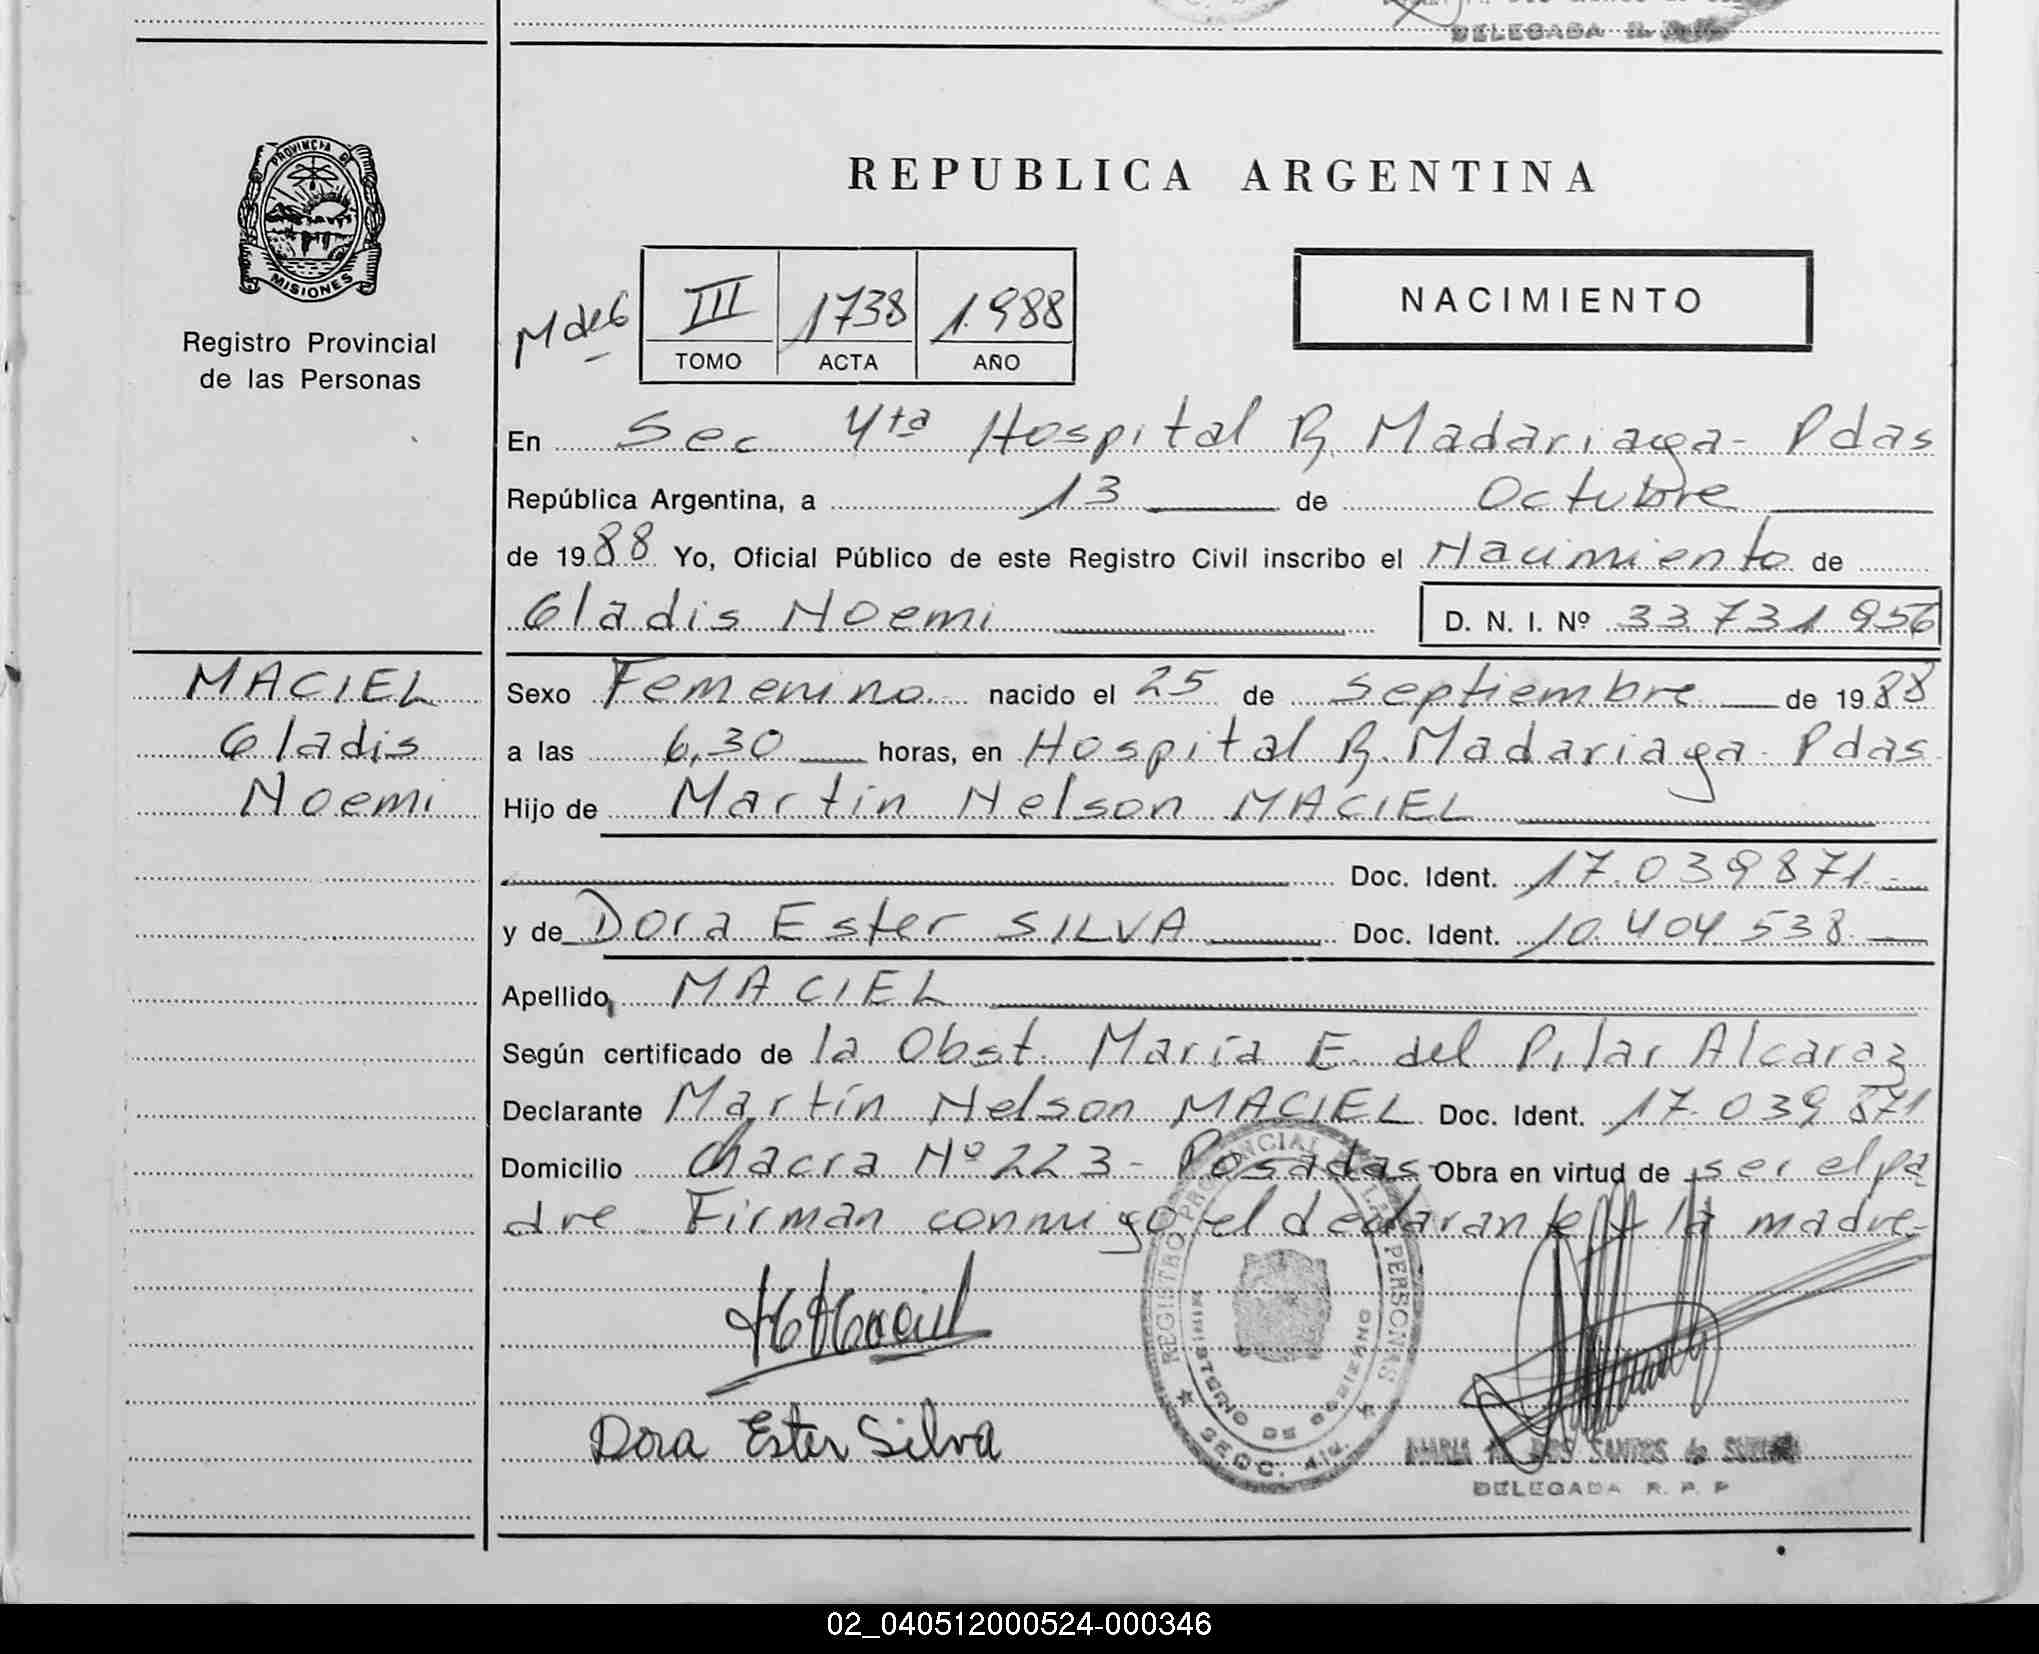 DELEGADA R.
PROVINCIA DE
MISIONES
Registro Provincial
de las Personas
REPUBLICA ARGENTINA
M de G
III 1738 1.988
TOMO ACTA AÑO
NACIMIENTO
En Sec 4ta Hospital R. Madariaga- Pdas
República Argentina, a 13 de Octubre
de 1988 Yo, Oficial Público de este Registro Civil inscribo el Nacimiento de
Gladis Noemi D. N. I. Nº 33 731 956
MACIEL
Gladis
Noemi
Sexo Femenino nacido el 25 de Septiembre de 1988
a las 6,30 horas, en Hospital R. Madariaga Pdas
Hijo de Martín Nelson MACIEL
Doc. Ident. 17.039871.-
y de Dora Ester SILVA Doc. Ident. 10.404 538.
Apellido, MACIEL
Según certificado de la Obst. María E. del Pilar Alcaraz
Declarante Martín Nelson MACIEL Doc. Ident. 17.039 871
Domicilio Chacra Nº 223- Posadas Obra en virtud de ser el pa
dre. Firman conmigo el declarante y la madre-
Dora Ester Silva
REGISTRO PROVINCIAL DE LAS PERSONAS
MINISTERIO DE GOBIERNO
SECC. 4ta.
MARIA DOS SANTOS de
DELEGADA R. P. P
02_040512000524-000346